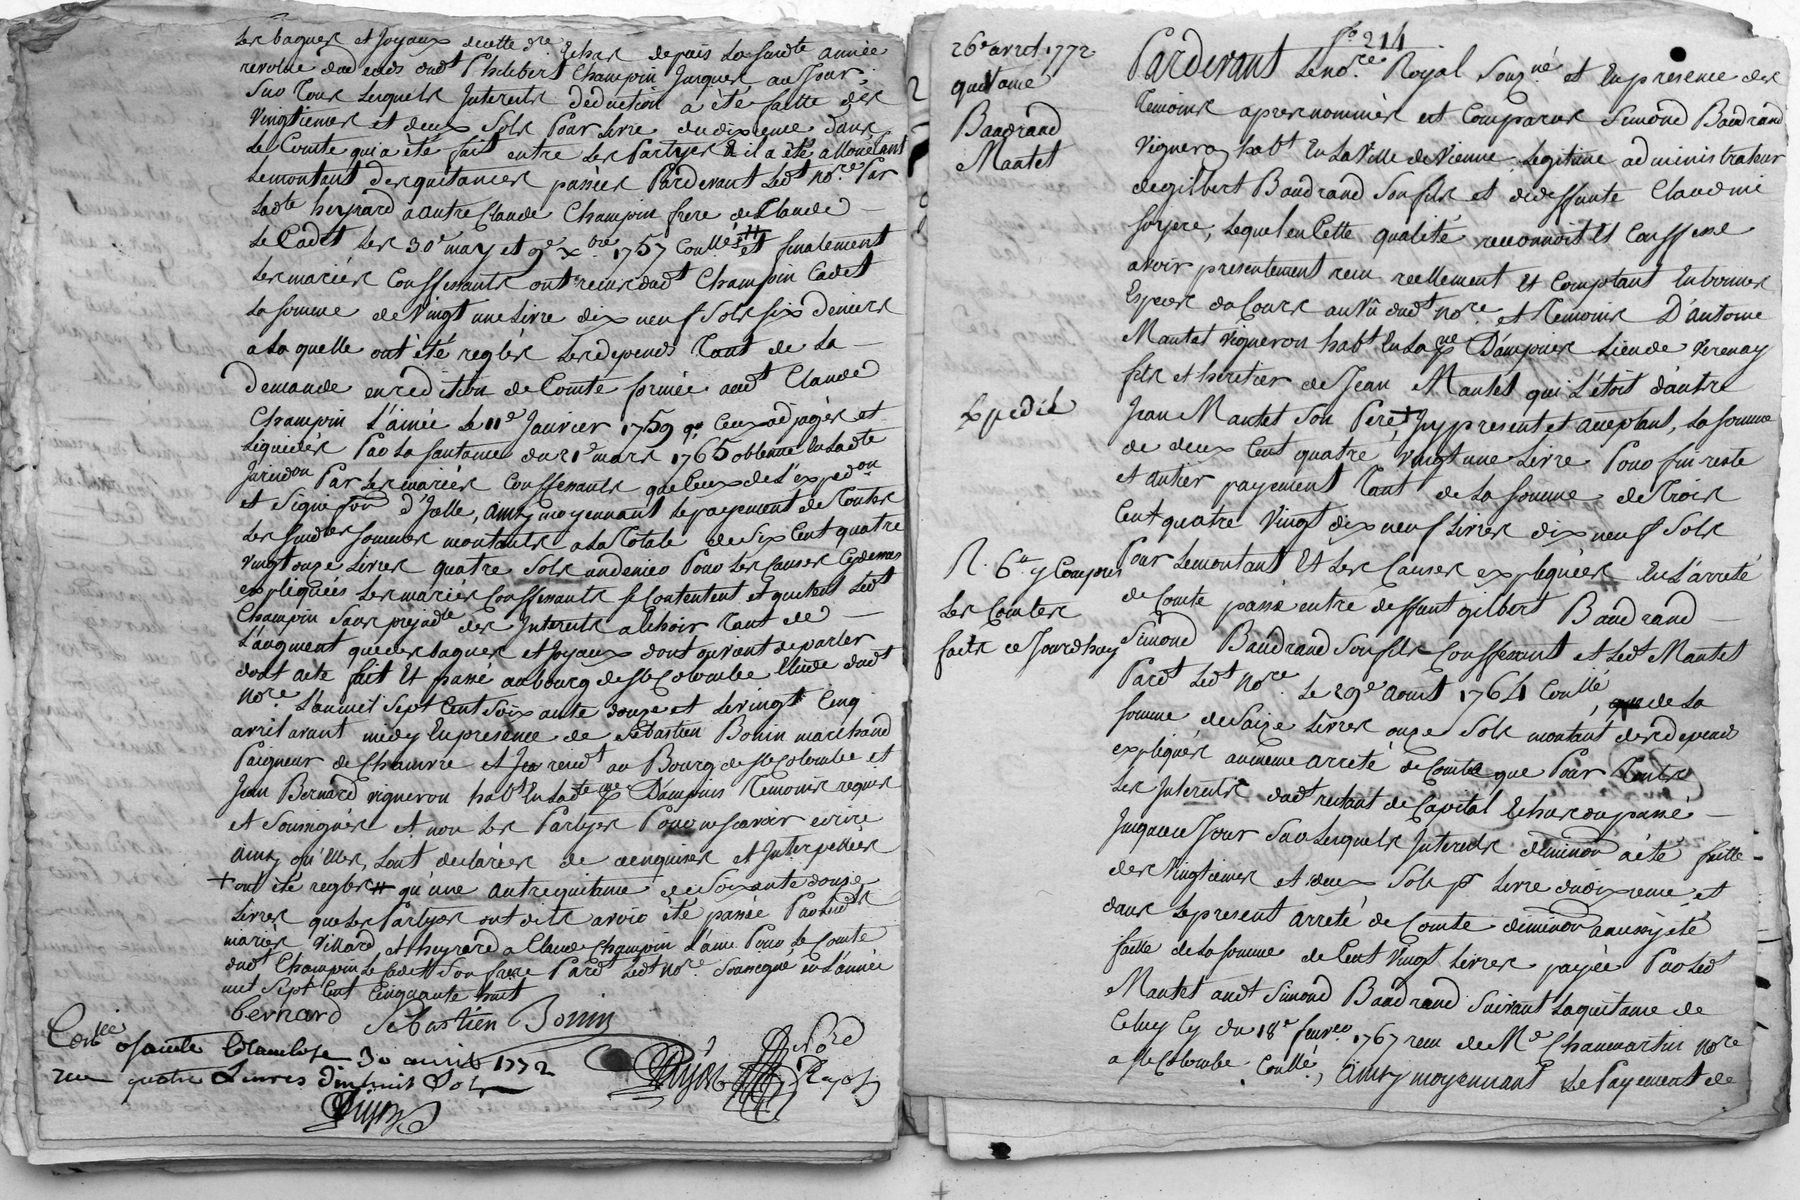 les bagues et Joyaux de cette dre. Echus depuis la susdte année
revolue du deceds dudt Philibert Champin Jusques au Jour
Sur tous lesquels Interets deduction a été faitte des
Vingtiemes et deux Sols Pour livre du dixieme dans
le Comte qui a été fait entre les Partyes & il a été alloué tant
le montant des quitances passées Pardevant ledt nore. Par
ladte heyrard a autre Claude Champin frere de Claude
le Cadet les 30e may et 9e xbre. 1757 Coullé et finalement
les mariés Conffessants ont reçus dudt Champin Cadet
la somme de Vingt une Livre dix neuf Sols six deniers
a la quelle ont été regles les depends tant de la
demande en redition de Comte formée audt Claude
Champin L'ainé le 11e Janvier 1759 que Ceux adjugés et
Liquidés Par la santance du 21e mars 1765 obtenue en ladte
Juridon Par les mariés Conffessants que Ceux de l'expedon
et Signiffon d'Jcelle, Ainsy moyennant le payement de toutes
les susdtes sommes montants a la totale de Six Cent quatre
Vingt onze Livres quatre Sols un denier Pour les Causes Cydevant
expliquées les mariés Conffessants se Contentent et quittent ledt
Champin Sans prejudce des Interets a Echoir tant de
L'augment que des bagues et Joyaux dont on vient de parler
dont acte fait Et passé au bourg de Ste Colombe Etude dudt
nore L'an mil Sept Cent Soixante douze et le vingt Cinq
avril avant midy En presence de Sebastien Bonin marchand
Paigneur de Chanvre et Jea residt au Bourg de Ste Colombe et
Jean Bernard vigneron habt En ladte psse D'ampuis temoins requis
et Soussignés et non les Partyes Pour ne sçavoir ecrire
Ainsy qu'elles, sont declarées de ce enquises et Interpellées
+ ont été regles # qu'une autre quitance de Soixante douze
Livres que les Partyes ont dit avoir été passée Par lesdts
mariés Villard et heyrard a Claude Champin L'ainé Pour le Comte
dudt Champin le Cadet Son frere Pardt ledt nore. Soussigné en L'année
mil Sept Cent Cinquante huit
bernard Sebastien Bonin
Conlé a Sainte Colombe le 30 avril 1772
reçu quatre Livres dix huit Sols
Nord
Royal
26e avril 1772
quitance
Baudrand
Mantet
Expedié
R. 6# y Compris
les Comtes
faits ce Jourdhuy
fo 214
Pardevant le nore. Royal Souzné et En presence des
temoins apres nommés est Comparus Simond Baudrand
Vigneron habt En la Ville de Vienne Legitime administrateur
de gilbert Baudrand Son fils et de deffunte Claudine
foyere, lequel en Cette qualité reconnoit Et Conffesse
avoir presentement reçu reellement Et Comptant En bonnes
Especes du Cours au Vû dudt nore. et temoins D'antoine
Mantet Vigneron habt En la psse D'ampuis Lieu de Verenay
fils et heritier de Jean Mantet qui L'étoit d'autre
Jean Mantet Son Pere + Jcy present et acceptant, la somme
de deux Cent quatre Vingt une Livre Pour fin reste
et entier payement tant de la somme de trois
Cent quatre Vingt dix neuf Livres dix neuf Sols
Pour le montant Et les Causes expliquées En L'arreté
de Comte passé entre deffunt gilbert Baudrand
Simond Baudrand Son fils Conffessant et ledt Mantet
Pardt ledt nore. le 29e aout 1764 Coullé, que de la
somme de Saize Livres onze Sols montant des depends
expliqués au meme arreté de Comte que Pour tous
les Interets dudt restant de Capital Echus du passé
Jusqu'a ce Jour Sur lesquels Interets diminuon a été faitte
des Vingtiemes et deux Sols pr Livre du dixieme, et
dans le present arreté de Comte diminuon a aussy été
faitte de la somme de Cent Vingt Livres payée Par ledt
Mantet audt Simond Baudrand Suivant la quitance de
Celuy Cy du 18e fevrer 1767 reçu de Me Chaumartin nore
a Ste Colombe Coullé, Ainsy moyennant le Payement de